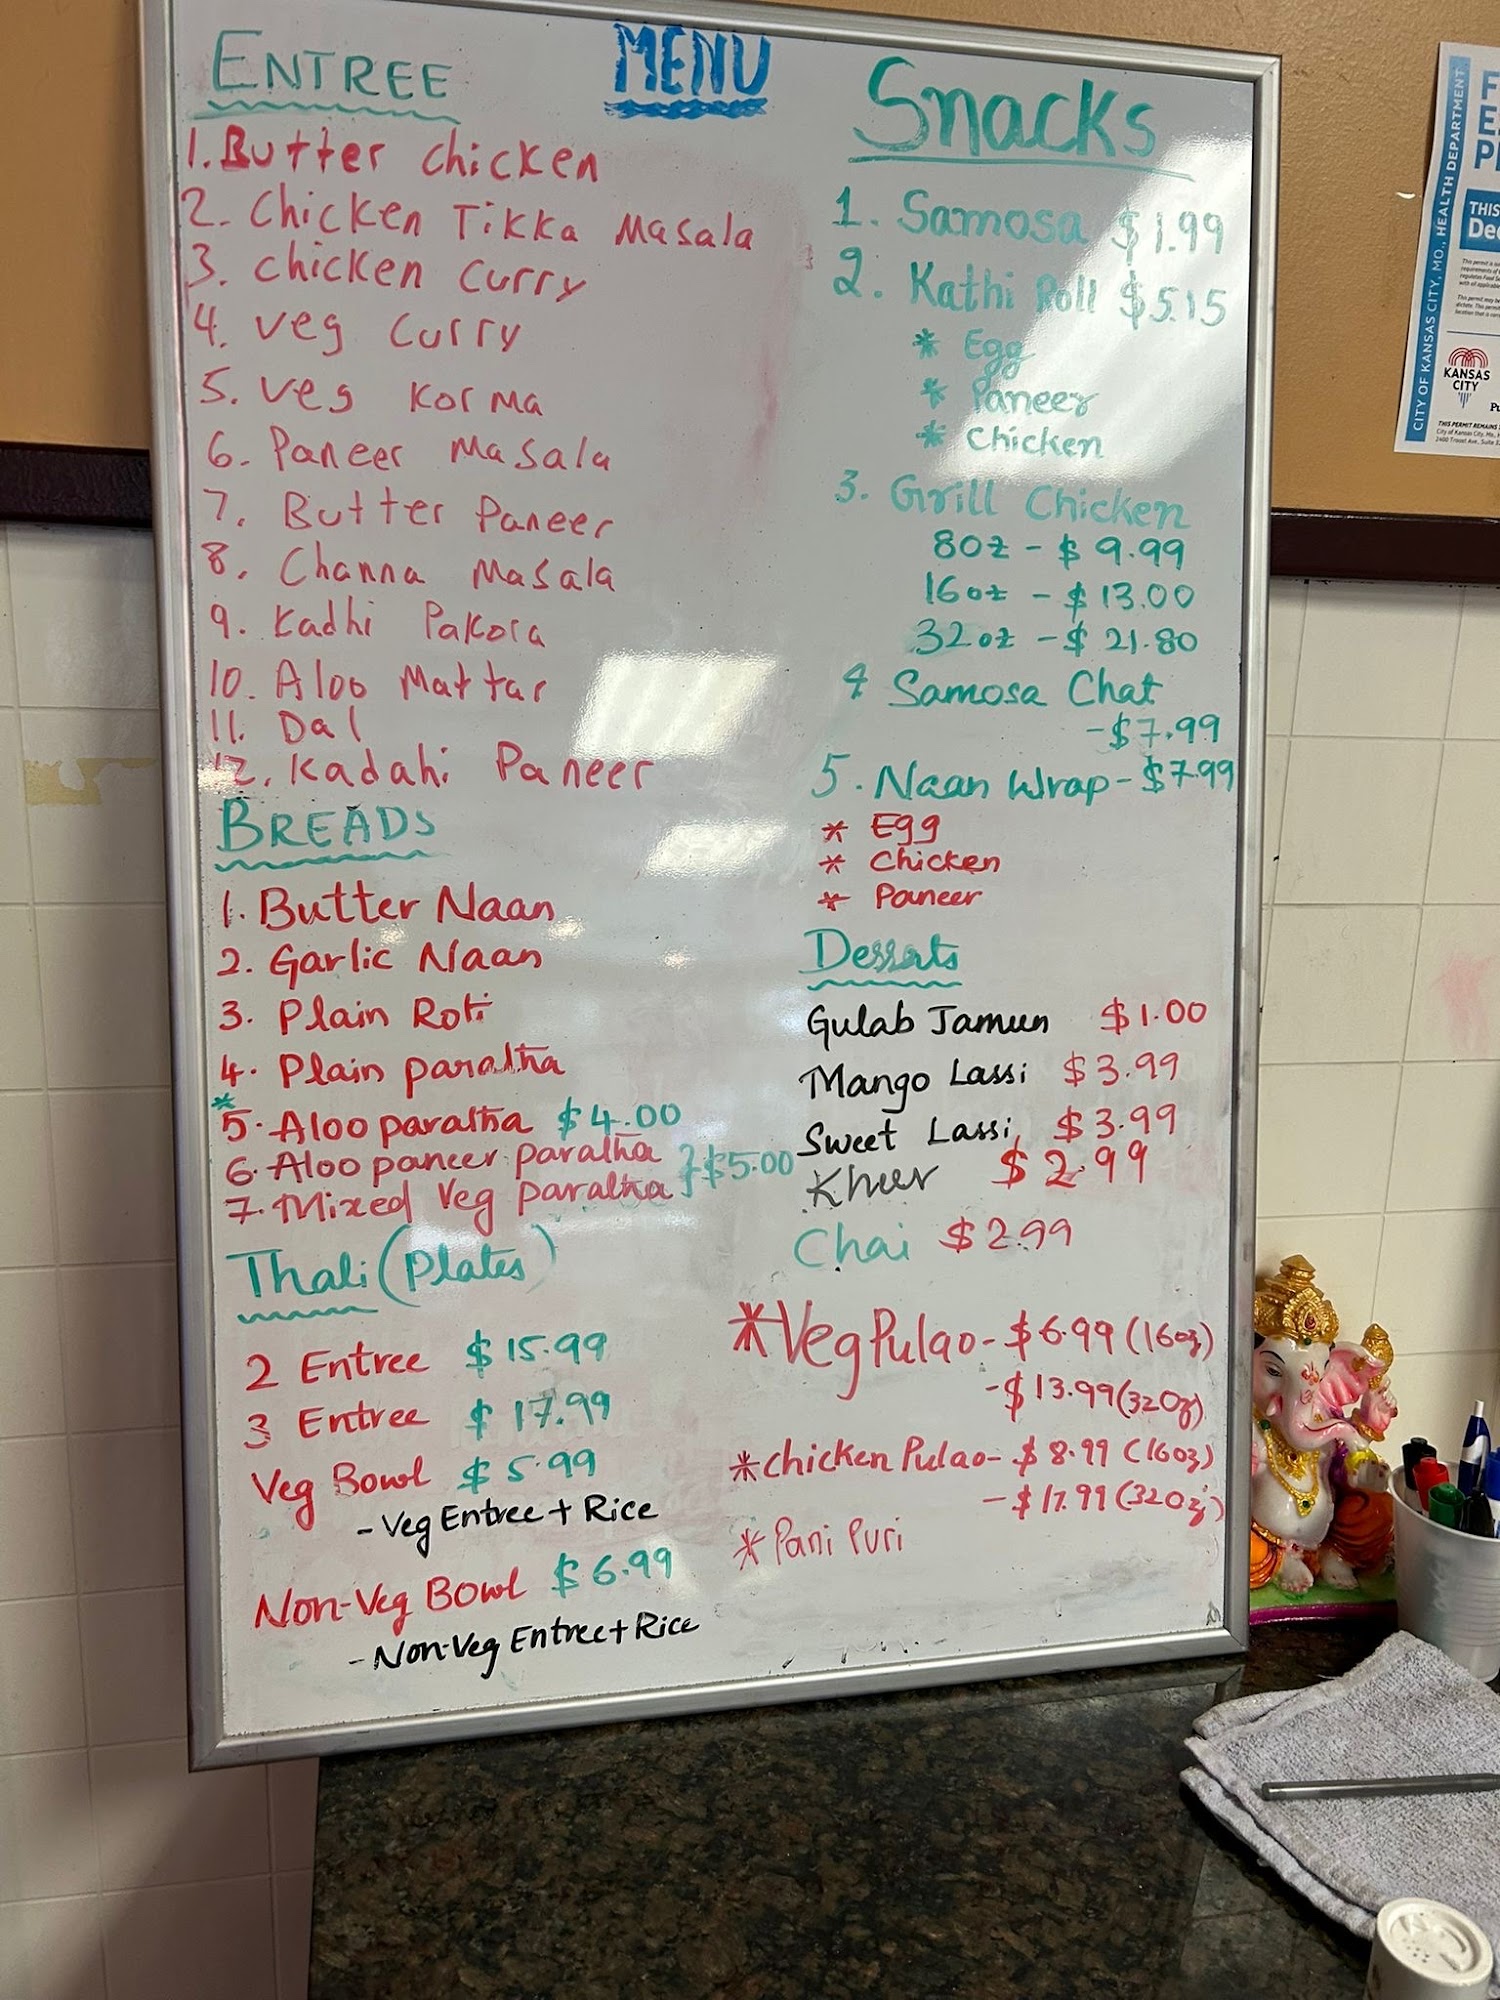 MENU
ENTREE
1. Butter chicken
2. Chicken Tikka Masala
3. chicken Curry
4. veg Curry
5. veg Korma
6. Paneer Masala
7. Butter Paneer
8. Channa Masala
9. Kadhi Pakora
10. Aloo Mattar
11. Dal
12. Kadahi Paneer
BREADS
1. Butter Naan
2. Garlic Naan
3. Plain Roti
4. Plain paratha
* 5. Aloo paratha $4.00
6. Aloo paneer paratha } $5.00
7. Mixed Veg paratha
Thali (Plates)
2 Entree $15.99
3 Entree $17.99
Veg Bowl $5.99
- Veg Entree + Rice
Non-Veg Bowl $6.99
- Non-Veg Entree + Rice
Snacks
1. Samosa $1.99
2. Kathi Roll $5.15
* Egg
* Paneer
* Chicken
3. Grill Chicken
8oz - $9.99
16oz - $13.00
32oz - $21.80
4 Samosa Chat
- $7.99
5. Naan Wrap - $7.99
* Egg
* Chicken
* Paneer
Desserts
Gulab Jamun $1.00
Mango Lassi $3.99
Sweet Lassi $3.99
Kheer $2.99
Chai $2.99
* Veg Pulao - $6.99 (16oz)
- $13.99 (32Oz)
* Chicken Pulao - $8.99 (16oz)
- $17.99 (32Oz)
* Pani Puri
CITY OF KANSAS CITY, MO., HEALTH DEPARTMENT
THIS
KANSAS
CITY
THIS PERMIT REMAINS